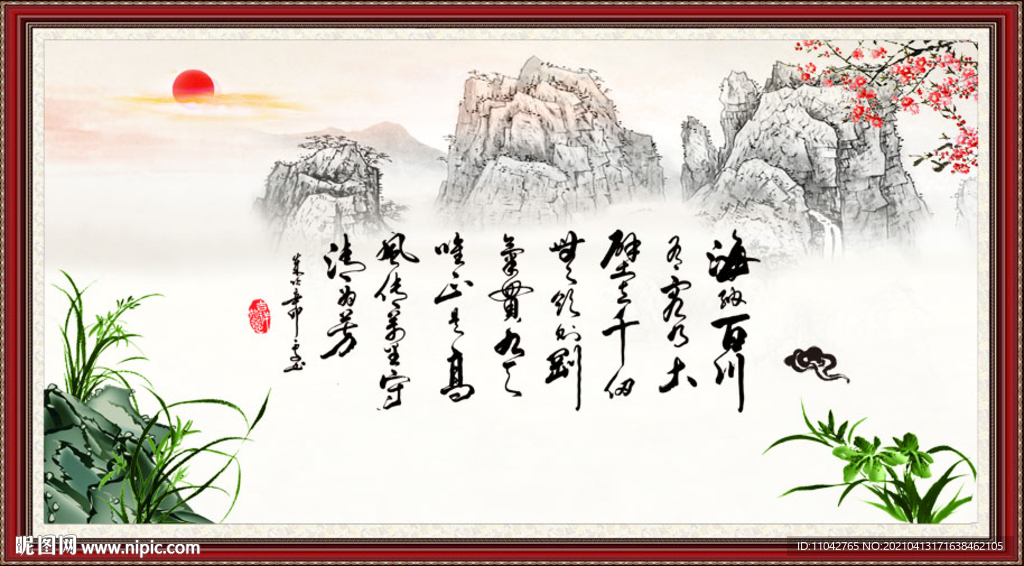 海纳百川
有容乃大
壁立千仞
無欲則剛
氣貫九天
唯正是高
風传萬里守
清为芳
昵图网 www.nipic.com
ID:11042765 NO:20210413171638462105